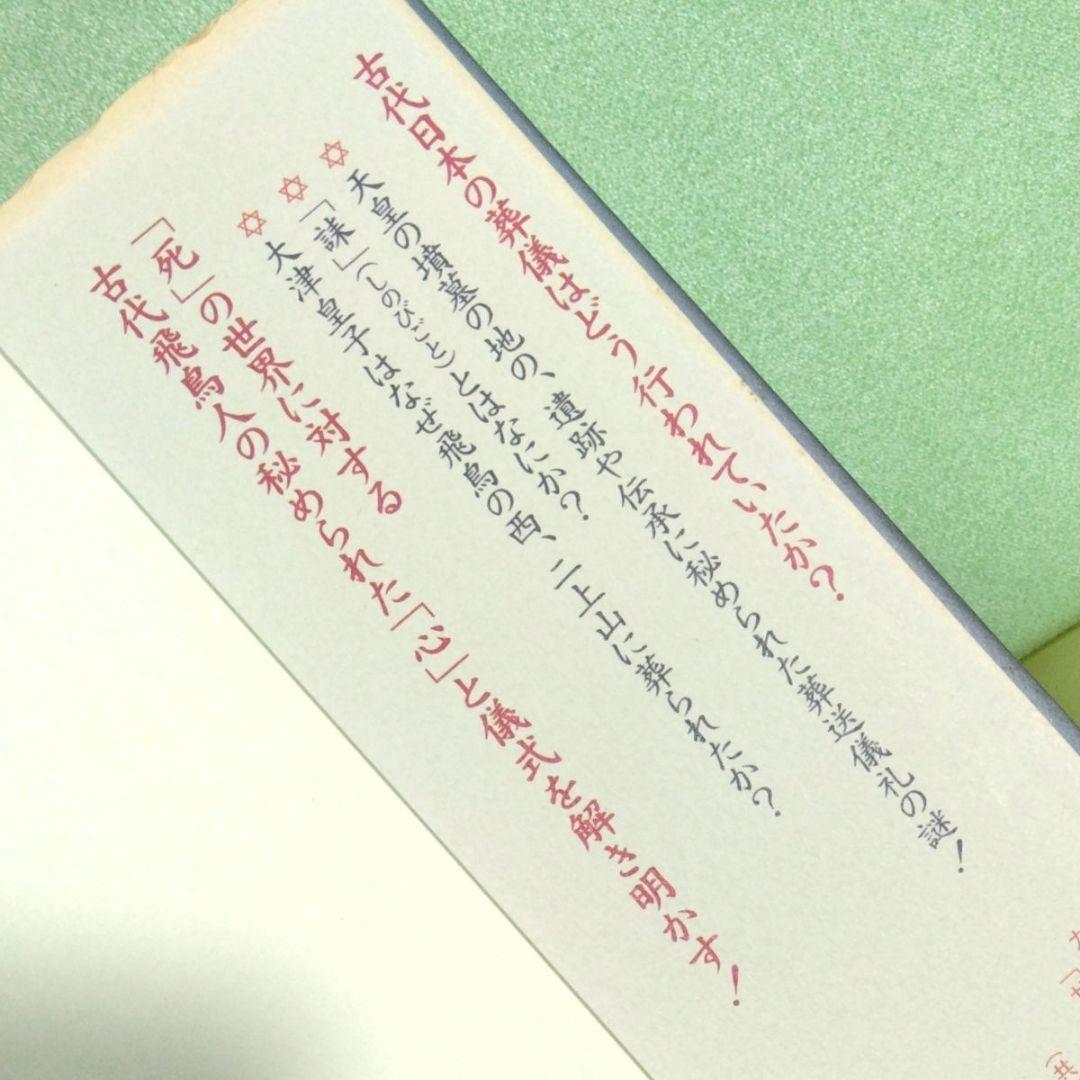 古代日本の葬儀はどう行われていたか？
✡天皇の墳墓の地の、遺跡や伝承に秘められた葬送儀礼の謎！
✡「誄」（しのびごと）とはなにか？
✡大津皇子はなぜ飛鳥の西、二上山に葬られたか？
「死」の世界に対する
古代飛鳥人の秘められた「心」と儀式を解き明かす！